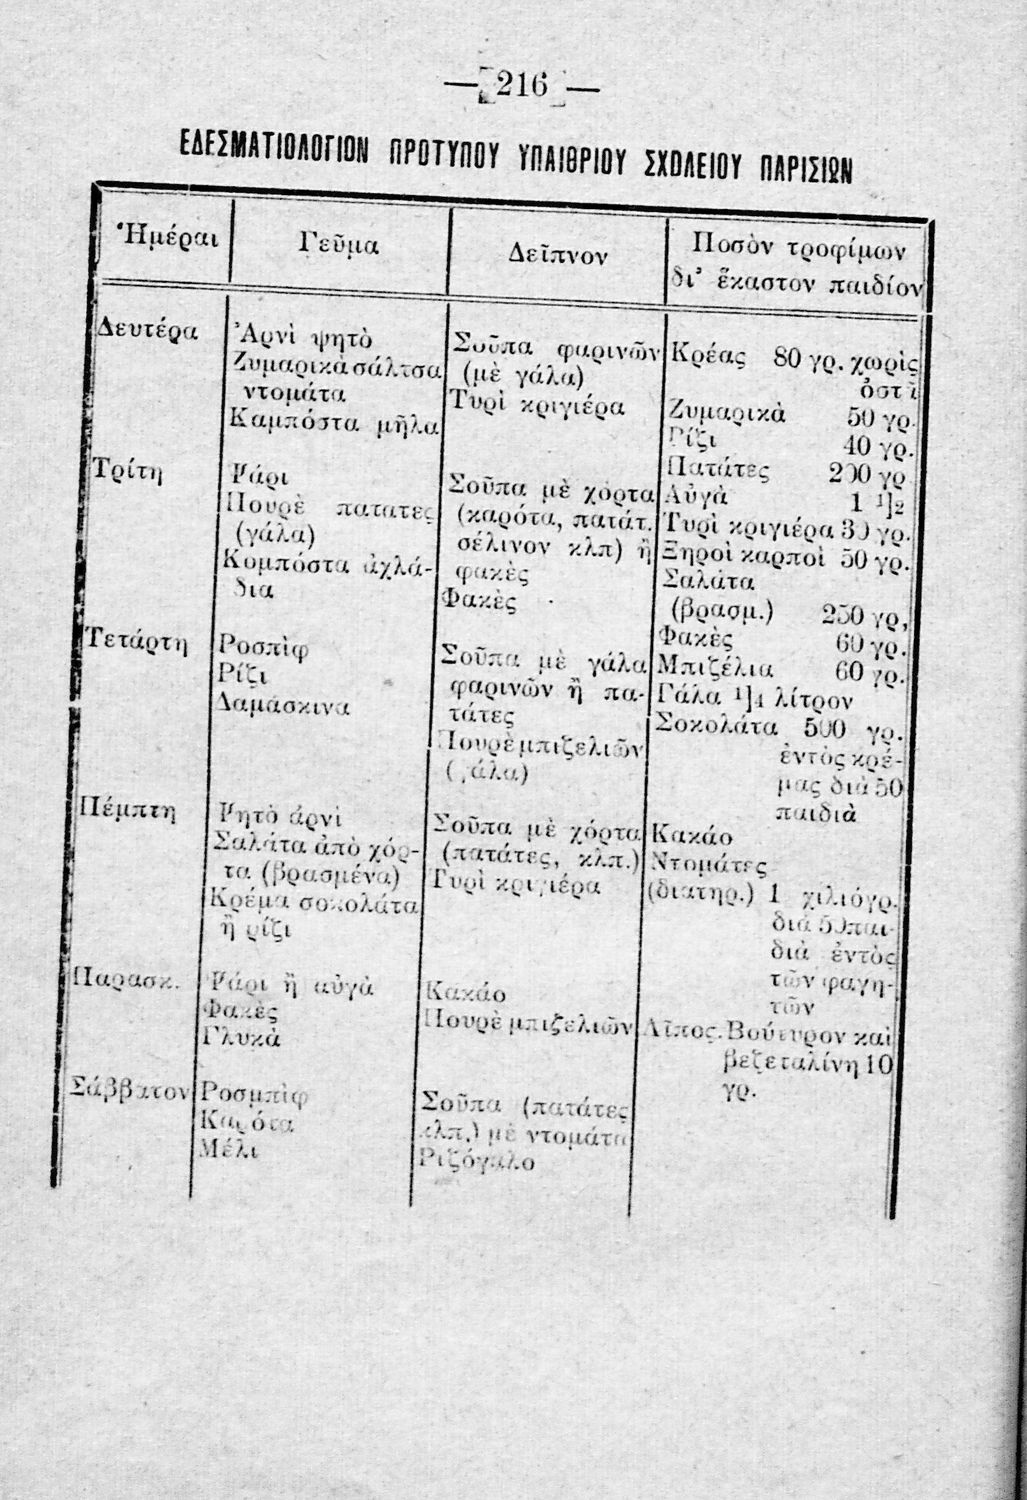 — 216 —
ΕΔΕΣΜΑΤΙΟΛΟΓΙΟΝ ΠΡΟΤΥΠΟΥ ΥΠΑΙΘΡΙΟΥ ΣΧΟΛΕΙΟΥ ΠΑΡΙΣΙΩΝ
Ἡμέραι
Γεῦμα
Δεῖπνον
Ποσὸν τροφίμων
δι' ἕκαστον παιδίον
Δευτέρα
Ἀρνὶ ψητὸ
Ζυμαρικὰ σάλτσα
ντομάτα
Καμπόστα μῆλα
Σοῦπα φαρινῶν
(μὲ γάλα)
Τυρὶ κριγιέρα
Τρίτη
Ψάρι
Πουρὲ πατατες
(γάλα)
Κομπόστα ἀχλά-
δια
Σοῦπα μὲ χόρτα
(καρότα, πατάτ.
σέλινον κλπ) ἢ
φακὲς
Φακὲς
Τετάρτη
Ροσπὶφ
Ρίζι
Δαμάσκινα
Σοῦπα μὲ γάλα
φαρινῶν ἢ πα-
τάτες
Πουρὲ μπιζελιῶν
(γάλα)
Πέμπτη
Ψητὸ ἀρνὶ
Σαλάτα ἀπὸ χόρ-
τα (βρασμένα)
Κρέμα σοκολάτα
ἢ ρίζι
Σοῦπα μὲ χόρτα
(πατάτες, κλπ.)
Τυρὶ κριγιέρα
Παρασκ.
Ψάρι ἢ αὐγὰ
Φακὲς
Γλυκὰ
Κακάο
Πουρὲ μπιζελιῶν
Σάββατον
Ροσμπὶφ
Καρότα
Μέλι
Σοῦπα (πατάτες
κλπ.) μὲ ντομάτα
Ριζόγαλο
Κρέας 80 γρ. χωρὶς
ὀστᾶ
Ζυμαρικὰ 50 γρ.
Ρίζι 40 γρ.
Πατάτες 200 γρ
Αὐγὰ 1 1]2
Τυρὶ κριγιέρα 30 γρ.
Ξηροὶ καρποὶ 50 γρ.
Σαλάτα
(βρασμ.) 250 γρ,
Φακὲς 60 γρ.
Μπιζέλια 60 γρ.
Γάλα 1]4 λίτρον
Σοκολάτα 500 γρ.
ἐντὸς κρέ-
μας διὰ 50
παιδιὰ
Κακάο
Ντομάτες
(διατηρ.) 1 χιλιόγρ.
διὰ 50 παι-
διὰ ἐντὸς
τῶν φαγη-
τῶν
Λῖπος. Βούτυρον καὶ
βεζεταλίνη 10
γρ.